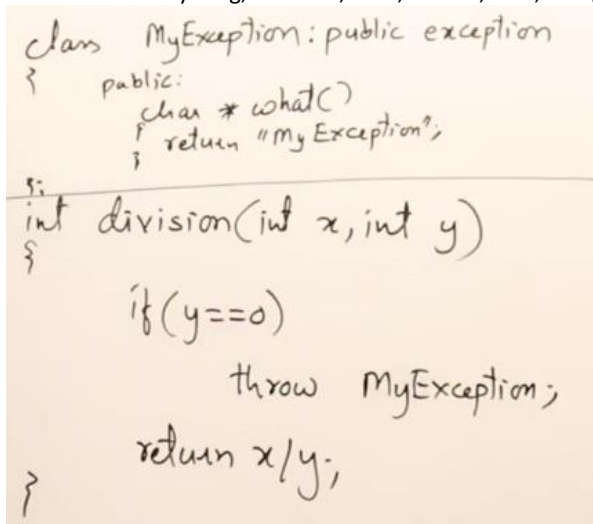 class MyException: public exception
{
public:
char * what()
{ return "My Exception";
}
};
int division(int x, int y)
{
if(y==0)
throw MyException;
return x/y;
}